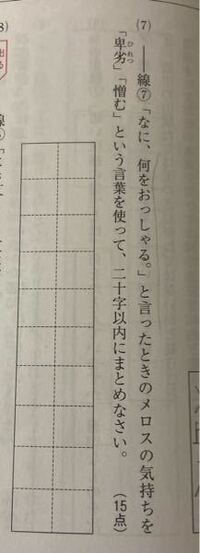 (7) ――線⑦「なに、何をおっしゃる。」と言ったときのメロスの気持ちを
「卑劣」「憎む」という言葉を使って、二十字以内にまとめなさい。 (15点)
ひれつ
8)
出る
線